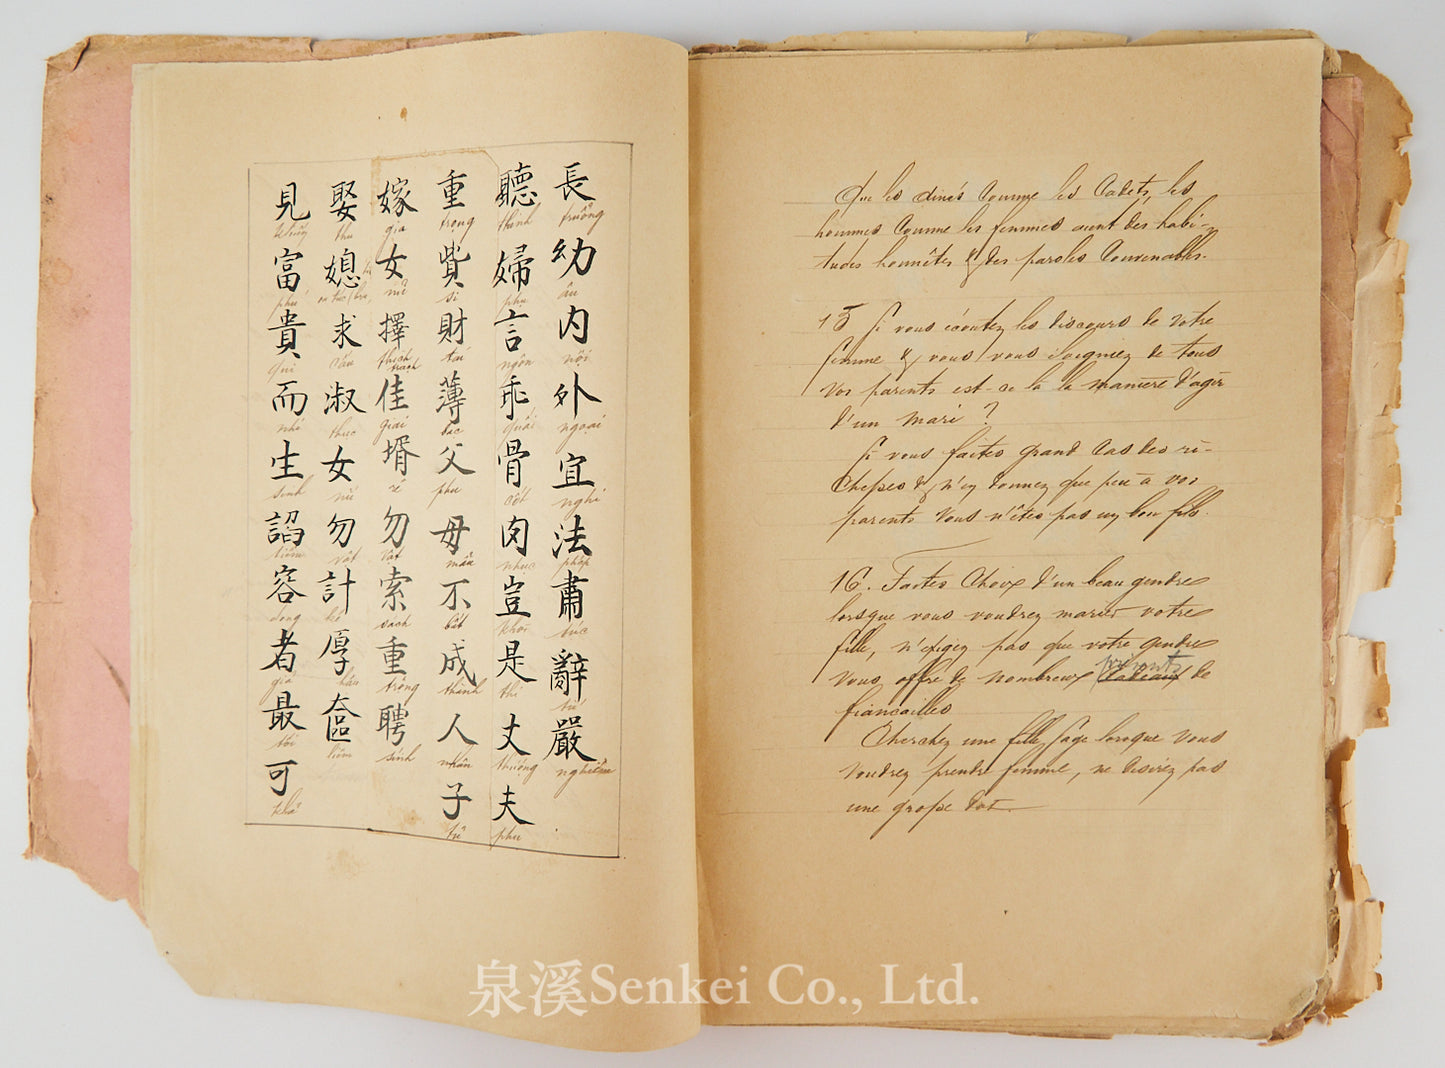 長幼内外宜法肅辭嚴
trưởng ấu nội ngoại nghi pháp túc từ nghiêm
聽婦言乖骨肉豈是丈夫
thính phụ ngôn quái cốt nhục khởi thị trượng phu
重貲財薄父母不成人子
trọng si tài bạc phụ mẫu bất thành nhân tử
嫁女擇佳壻勿索重聘
gia nữ thích trạch giai rể vật sách trọng sính
娶媳求淑女勿計厚奩
thú tức cầu thục nữ vật kế hậu liêm
見富貴而生諂容者最可
kiến phú quí nhi sinh siểm dong giả tối khả
Que les aînés comme les Cadets, les
hommes comme les femmes aient des habi-
tudes honnêtes & des paroles Convenables.
15 Si vous écoutez les discours de votre
femme & vous vous éloigniez de tous
vos parents est-ce là la manière d'agir
d'un mari ?
Si vous faites grand Cas des ri-
chesses & n'en donnez que peu à vos
parents vous n'êtes pas un bon fils.
16. Faites Choix d'un beau gendre
lorsque vous voudrez marier votre
fille, n'exigez pas que votre gendre
vous offre de nombreux cadeaux présents de
fiancailles
Cherchez une fille sage lorsque vous
voudrez prendre femme, ne désirez pas
une grosse dot.
泉溪Senkei Co., Ltd.